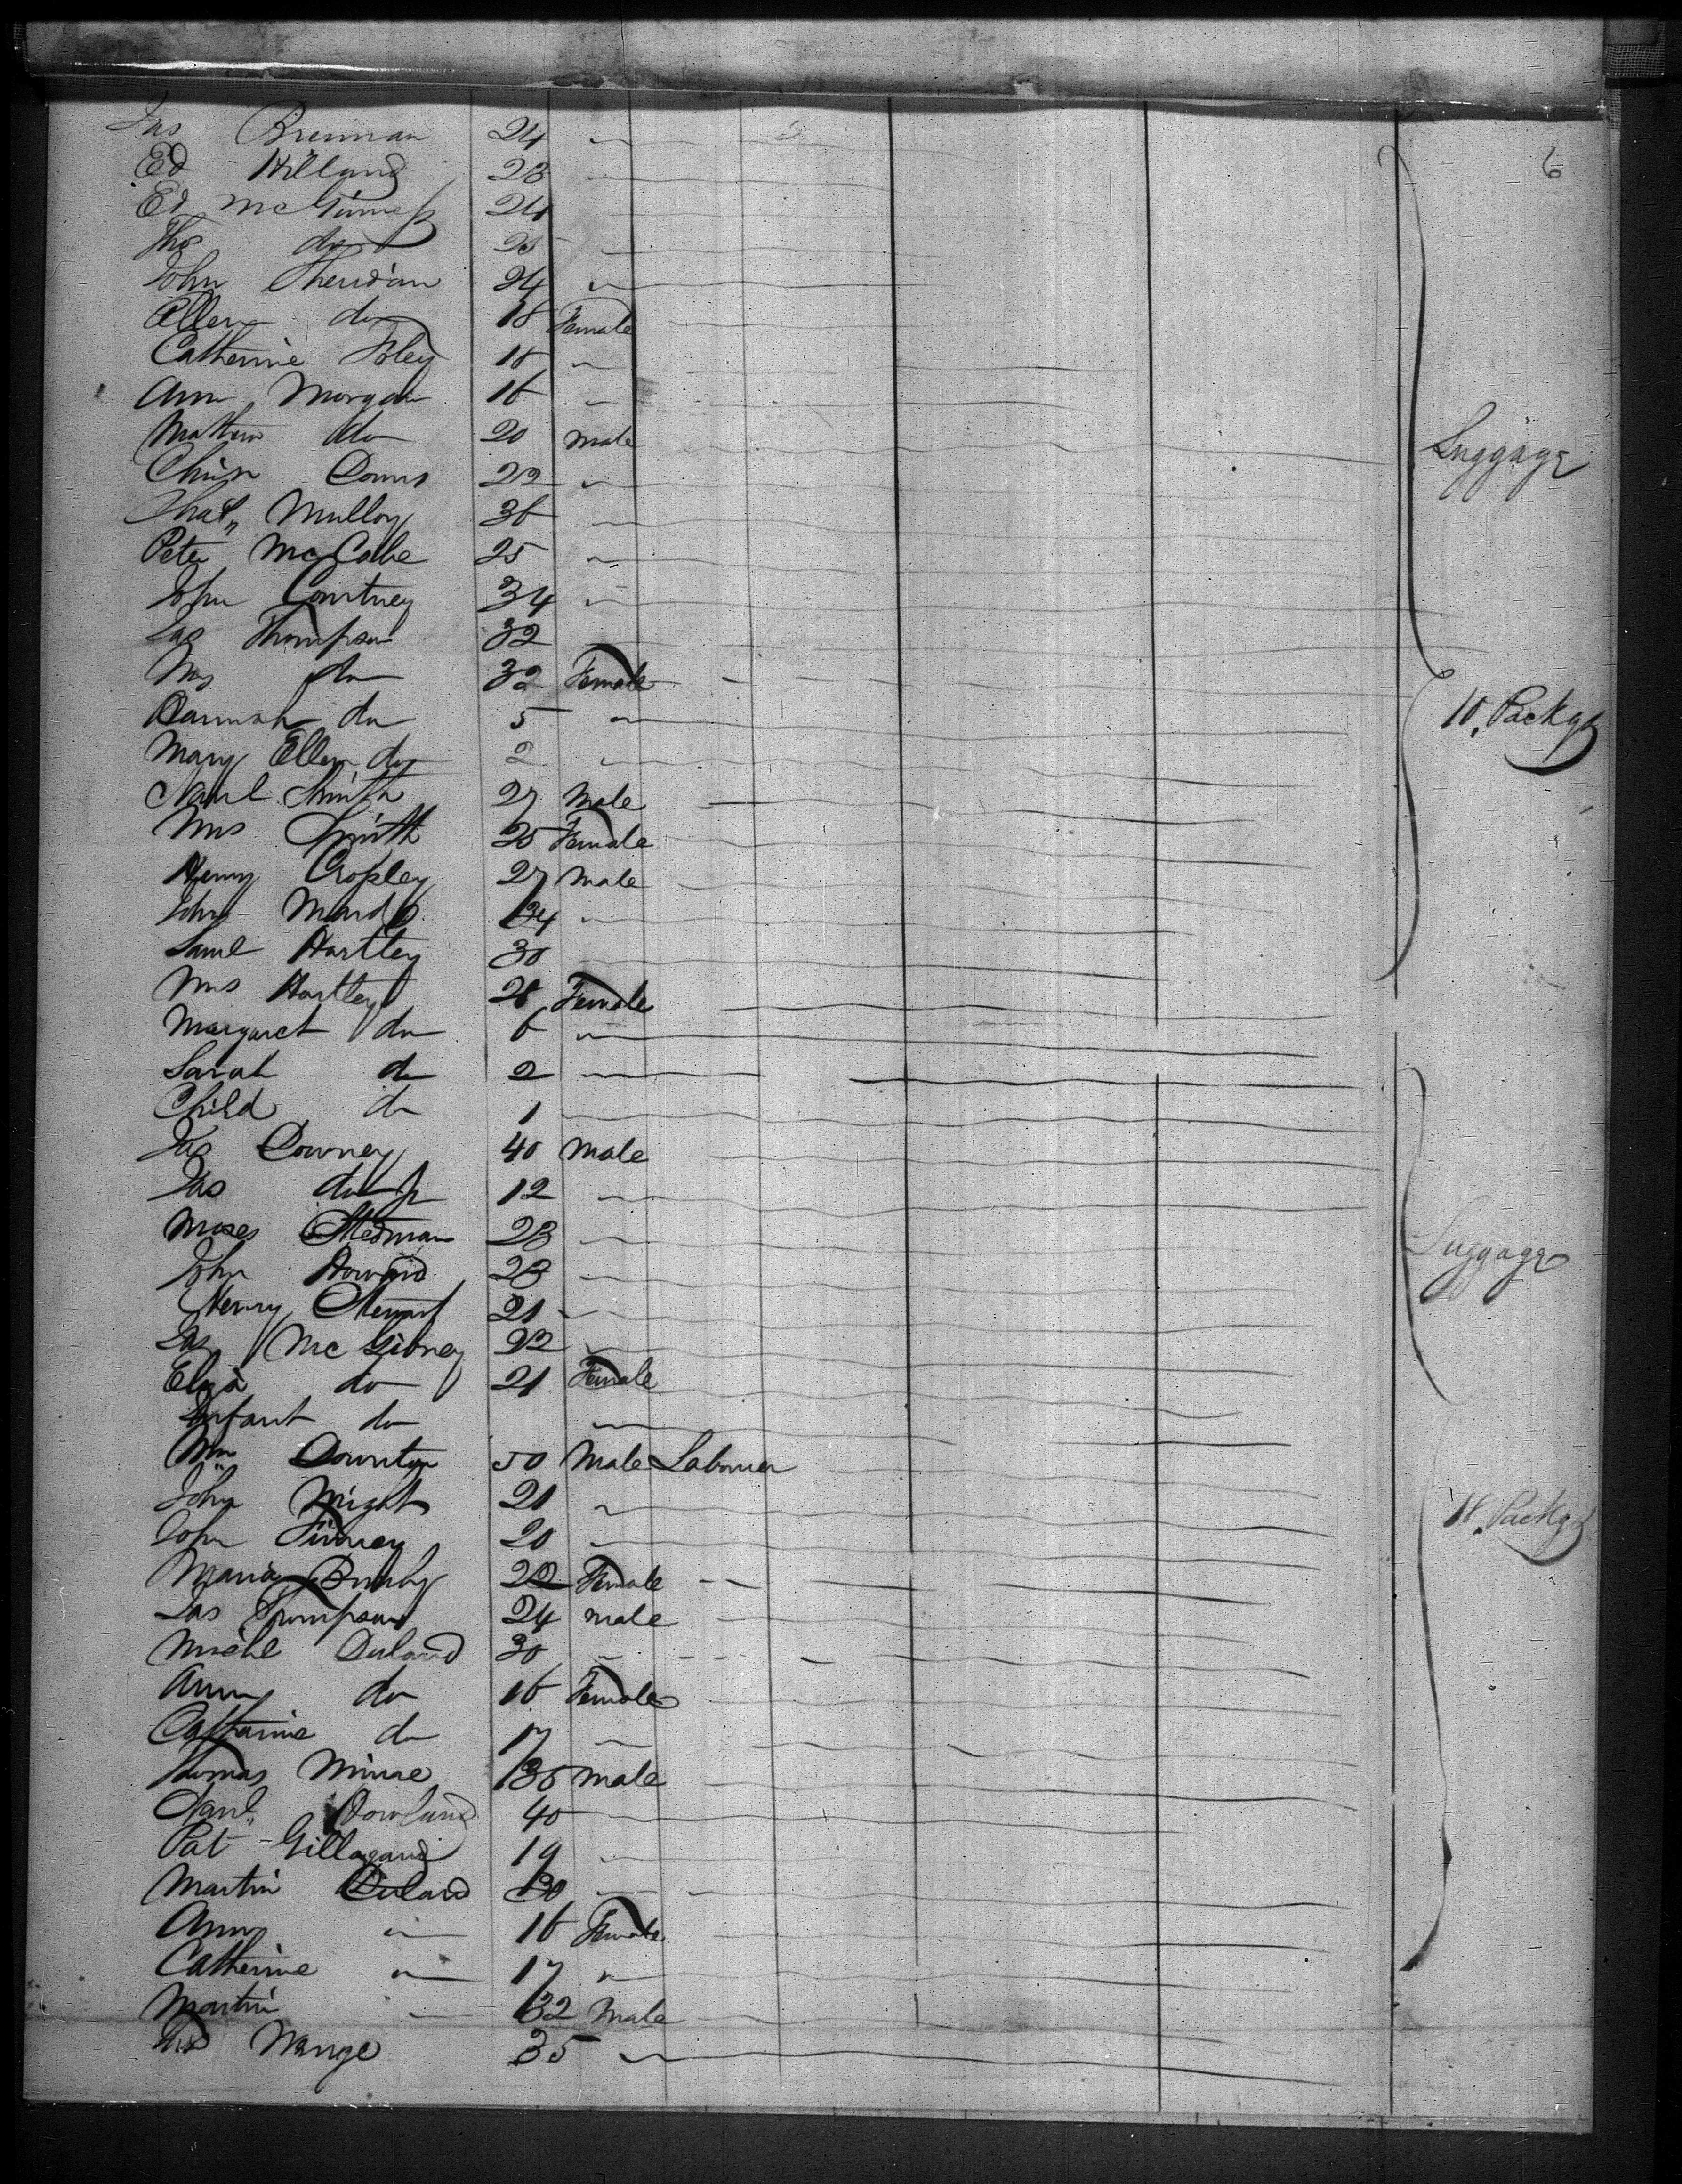 6
Jas Brennan 24 "
Ed Hilland 23 "
Ed McGinness 24
Thos do 25 "
John Sheridan 24 "
Ellen do 18 Female
Catherine Foley 18 "
Ann Morgan 16 "
Mathew do 20 male
Downs 22 "
Mulloy 36 "
Peter McCabe 25 "
John Courtney 34 "
Jas Thompson 32
do 32 Female
Hannah do 5 "
Mary Ellen do 2 "
Saml Smith 27 Male
Mrs Smith 25 Female
Henry Cropley 27 Male
John 34 "
Saml Hartley 30
Mrs Hartley 28 Female
Margaret do 6 "
Sarah do 2 "
Child do 1
Jas Downey 40 Male
Jas do Jr 12 "
Moses Stedman 23 "
John Howard 23 "
Henry Stewart 21 "
Jas McGibney 22 "
Eliza do 21 Female
Infant do "
Wm Downton 50 Male Labourer
John Wright 21 "
John Finney 20 "
Maria 22 Female
Jas Thompson 24 male
Michl Duland 30 "
Ann do 16 Female
Catharine do 17 "
Thomas 36 male
Danl Rowland 40 "
Pat Gillagand 19 "
Martin Duland 30 "
Ann " 16 Female
Catherine " 17 "
Martin " 32 Male
Wange 35 "
Luggage
10. Packgs
Luggage
18. Packgs